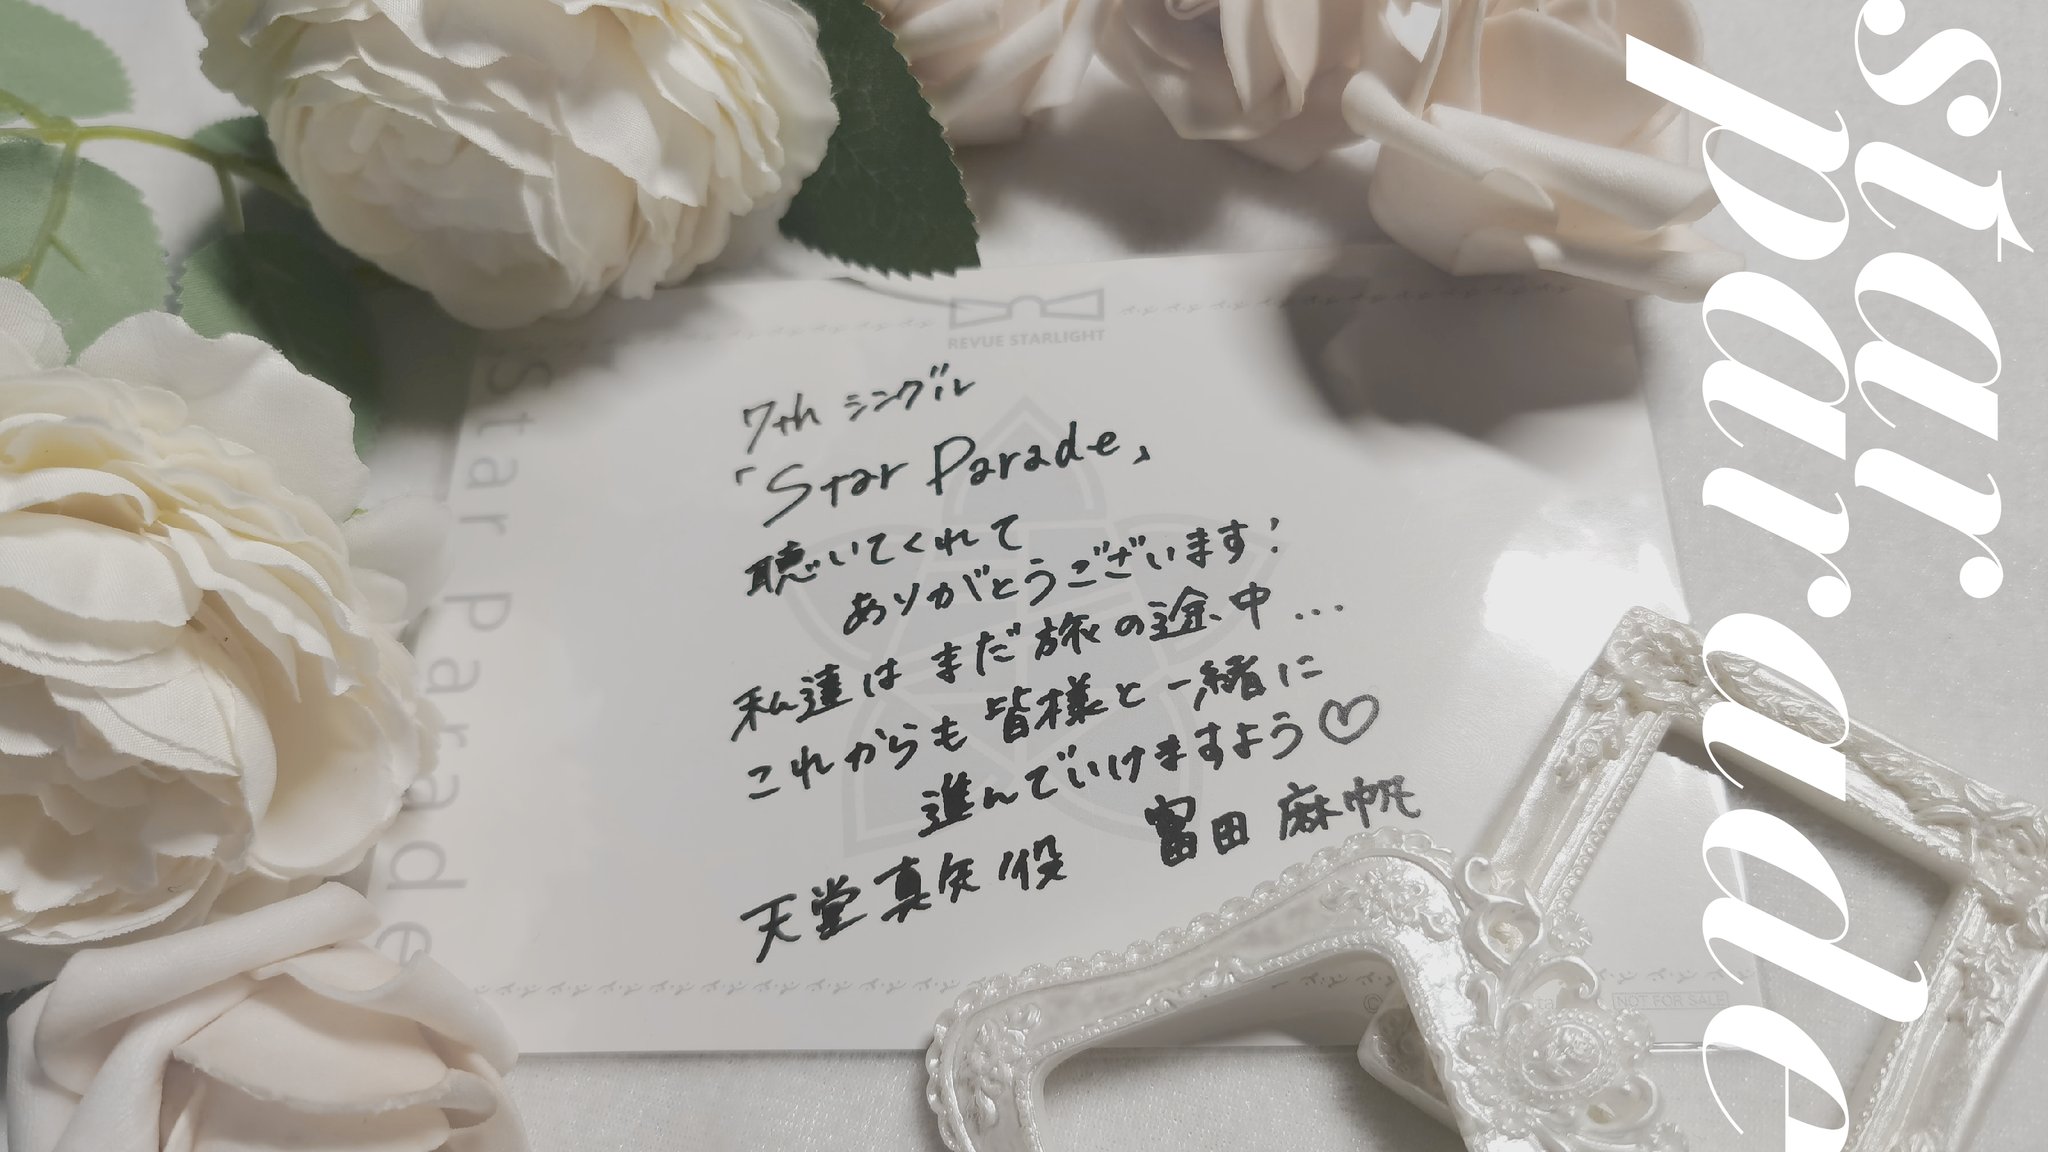 star
parade
REVUE STARLIGHT
Star Parade
7th シングル
「Star Parade」
聴いてくれて
ありがとうございます!
私達は まだ 旅の途中...
これからも 皆様と一緒に
進んでいけますよう♡
天堂真矢役 富田 麻帆
NOT FOR SALE